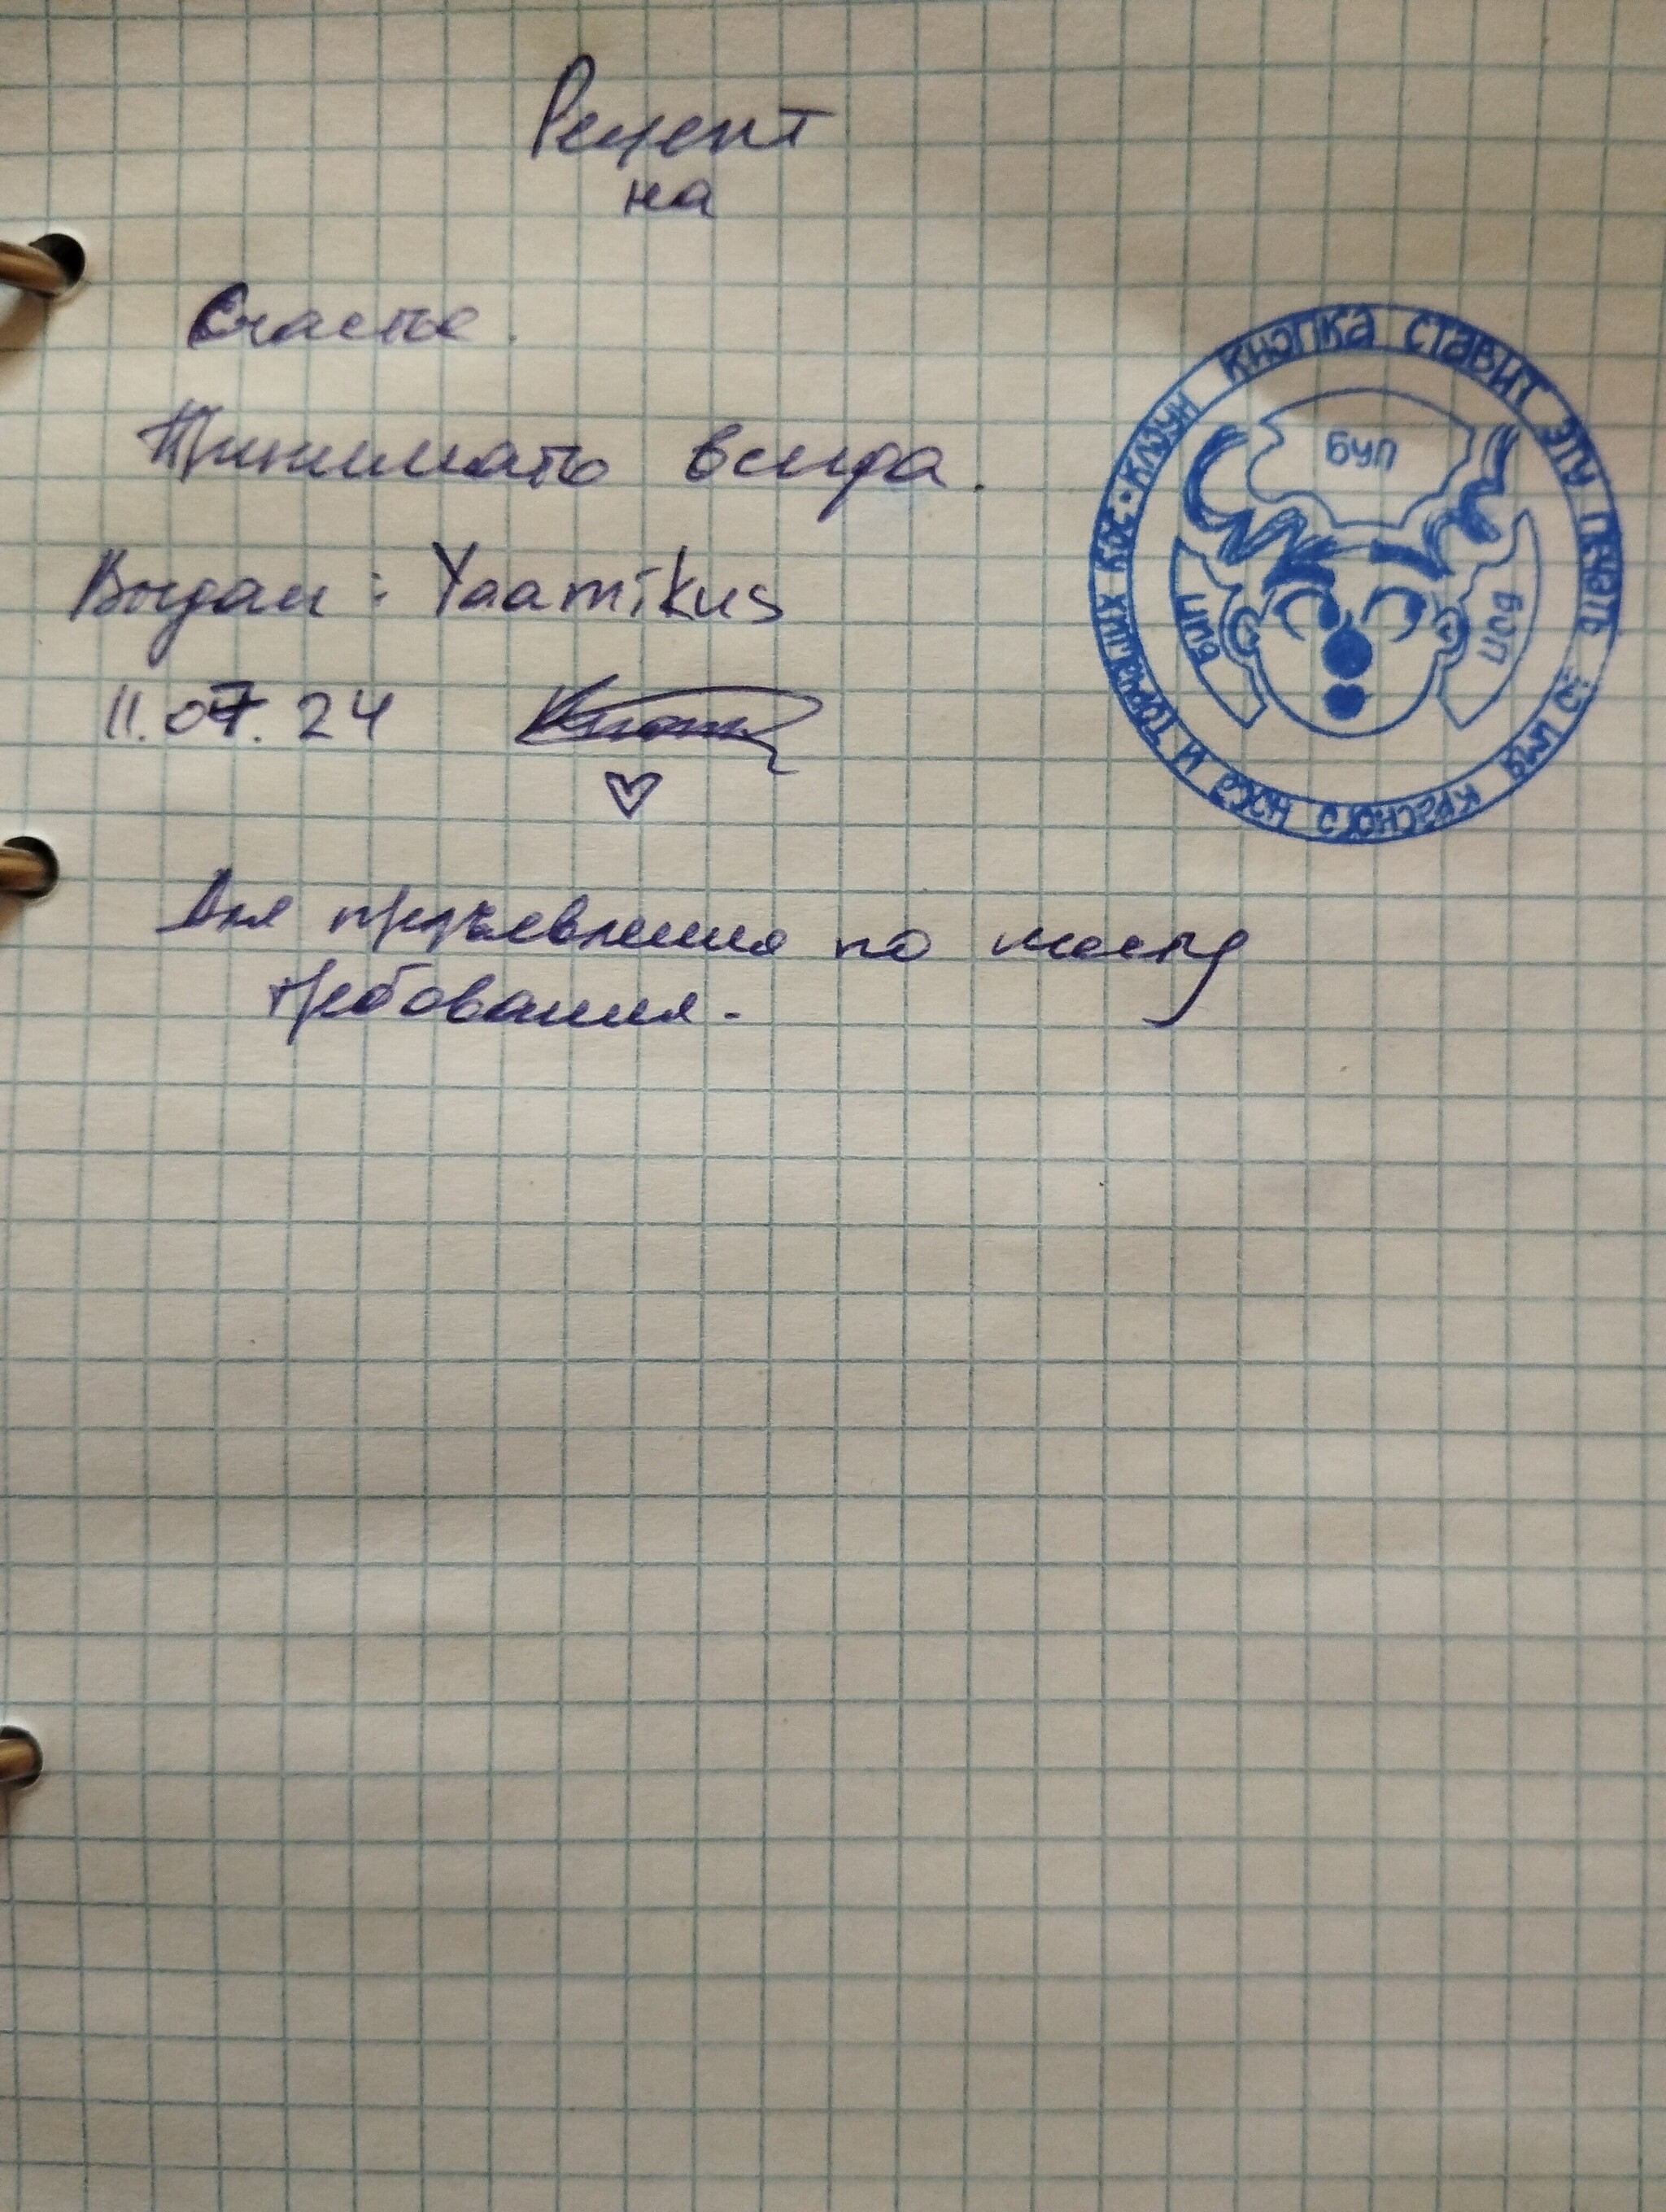 Рецепт
на
Счастье.
Принимать всегда.
Выдан: Yaamikus
11.07.24
Для предъявления по месту
требования.
КНОПКА СТАВИТ ЭТУ ПЕЧАТЬ ВО ИМЯ КРАСНОГО НОСА И ТОРЧАЩИХ КОС • КЛОУН
БУП
БИП
БИП